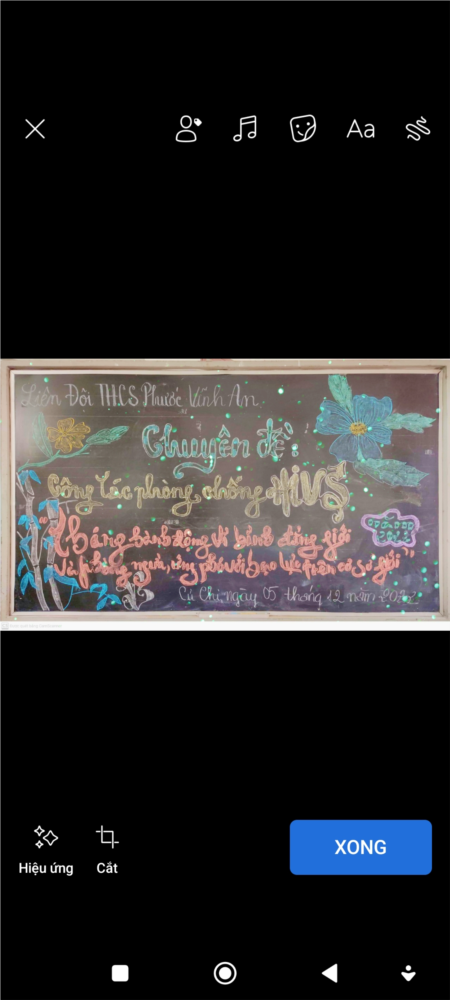 Aa
Liên Đội THCS Phước Vĩnh An
Chuyên đề:
Công tác phòng, chống HIV
"Tháng hành động vì bình đẳng giới
và phòng ngừa, ứng phó với bạo lực trên cơ sở giới"
Củ Chi, ngày 05 tháng 12 năm 2022
Hiệu ứng
Cắt
XONG